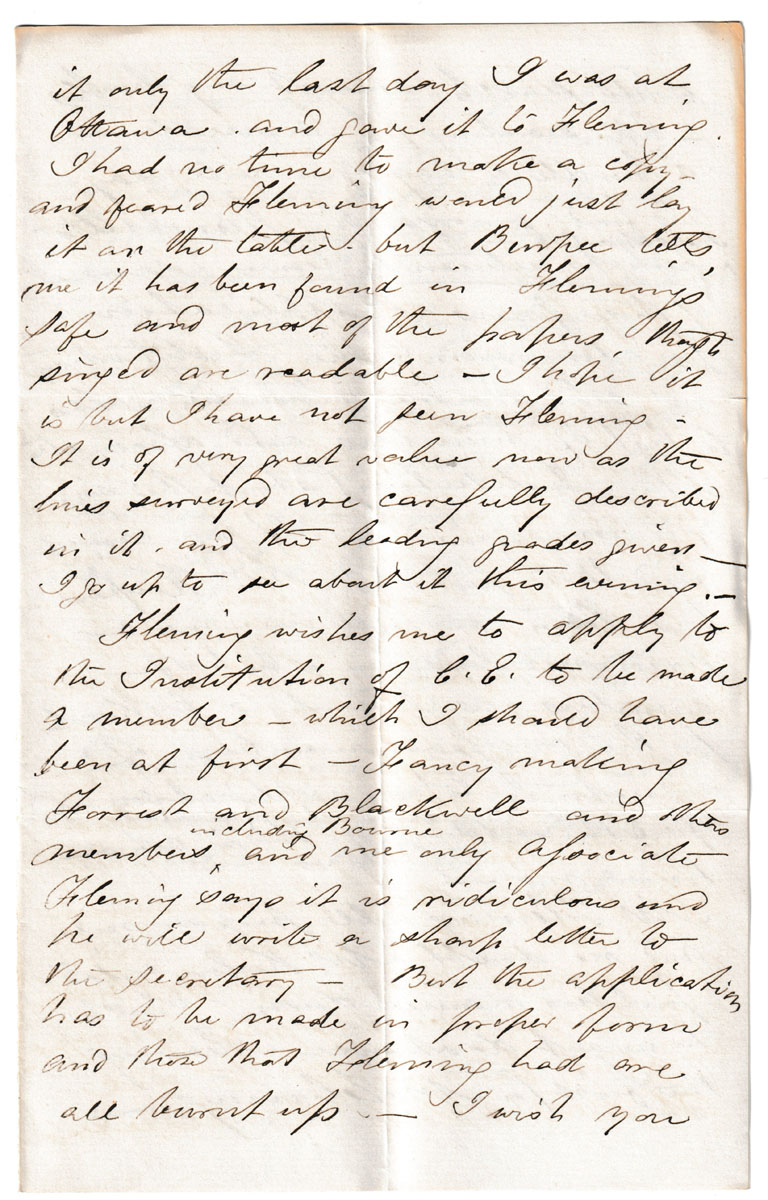 it only the last day I was at
Ottawa. and gave it to Fleming.
I had no time to make a copy -
and feared Fleming would just lay
it on the table. but Burpee tells
me it has been found in Fleming's
safe and most of the papers though
singed are readable - I hope it
is but I have not seen Fleming -
It is of very great value now as the
lines surveyed are carefully described
in it. and the leading grades given -
I go up to see about it this evening. -
Fleming wishes me to apply to
the Institution of C. E. to be made
a member - which I should have
been at first - Fancy making
Forrest and Blackwell and others
including Bourne
members ^ and me only associate
Fleming says it is ridiculous and
he will write a sharp letter to
the secretary - But the application
has to be made in proper form
and those that Fleming had are
all burnt up. - I wish you